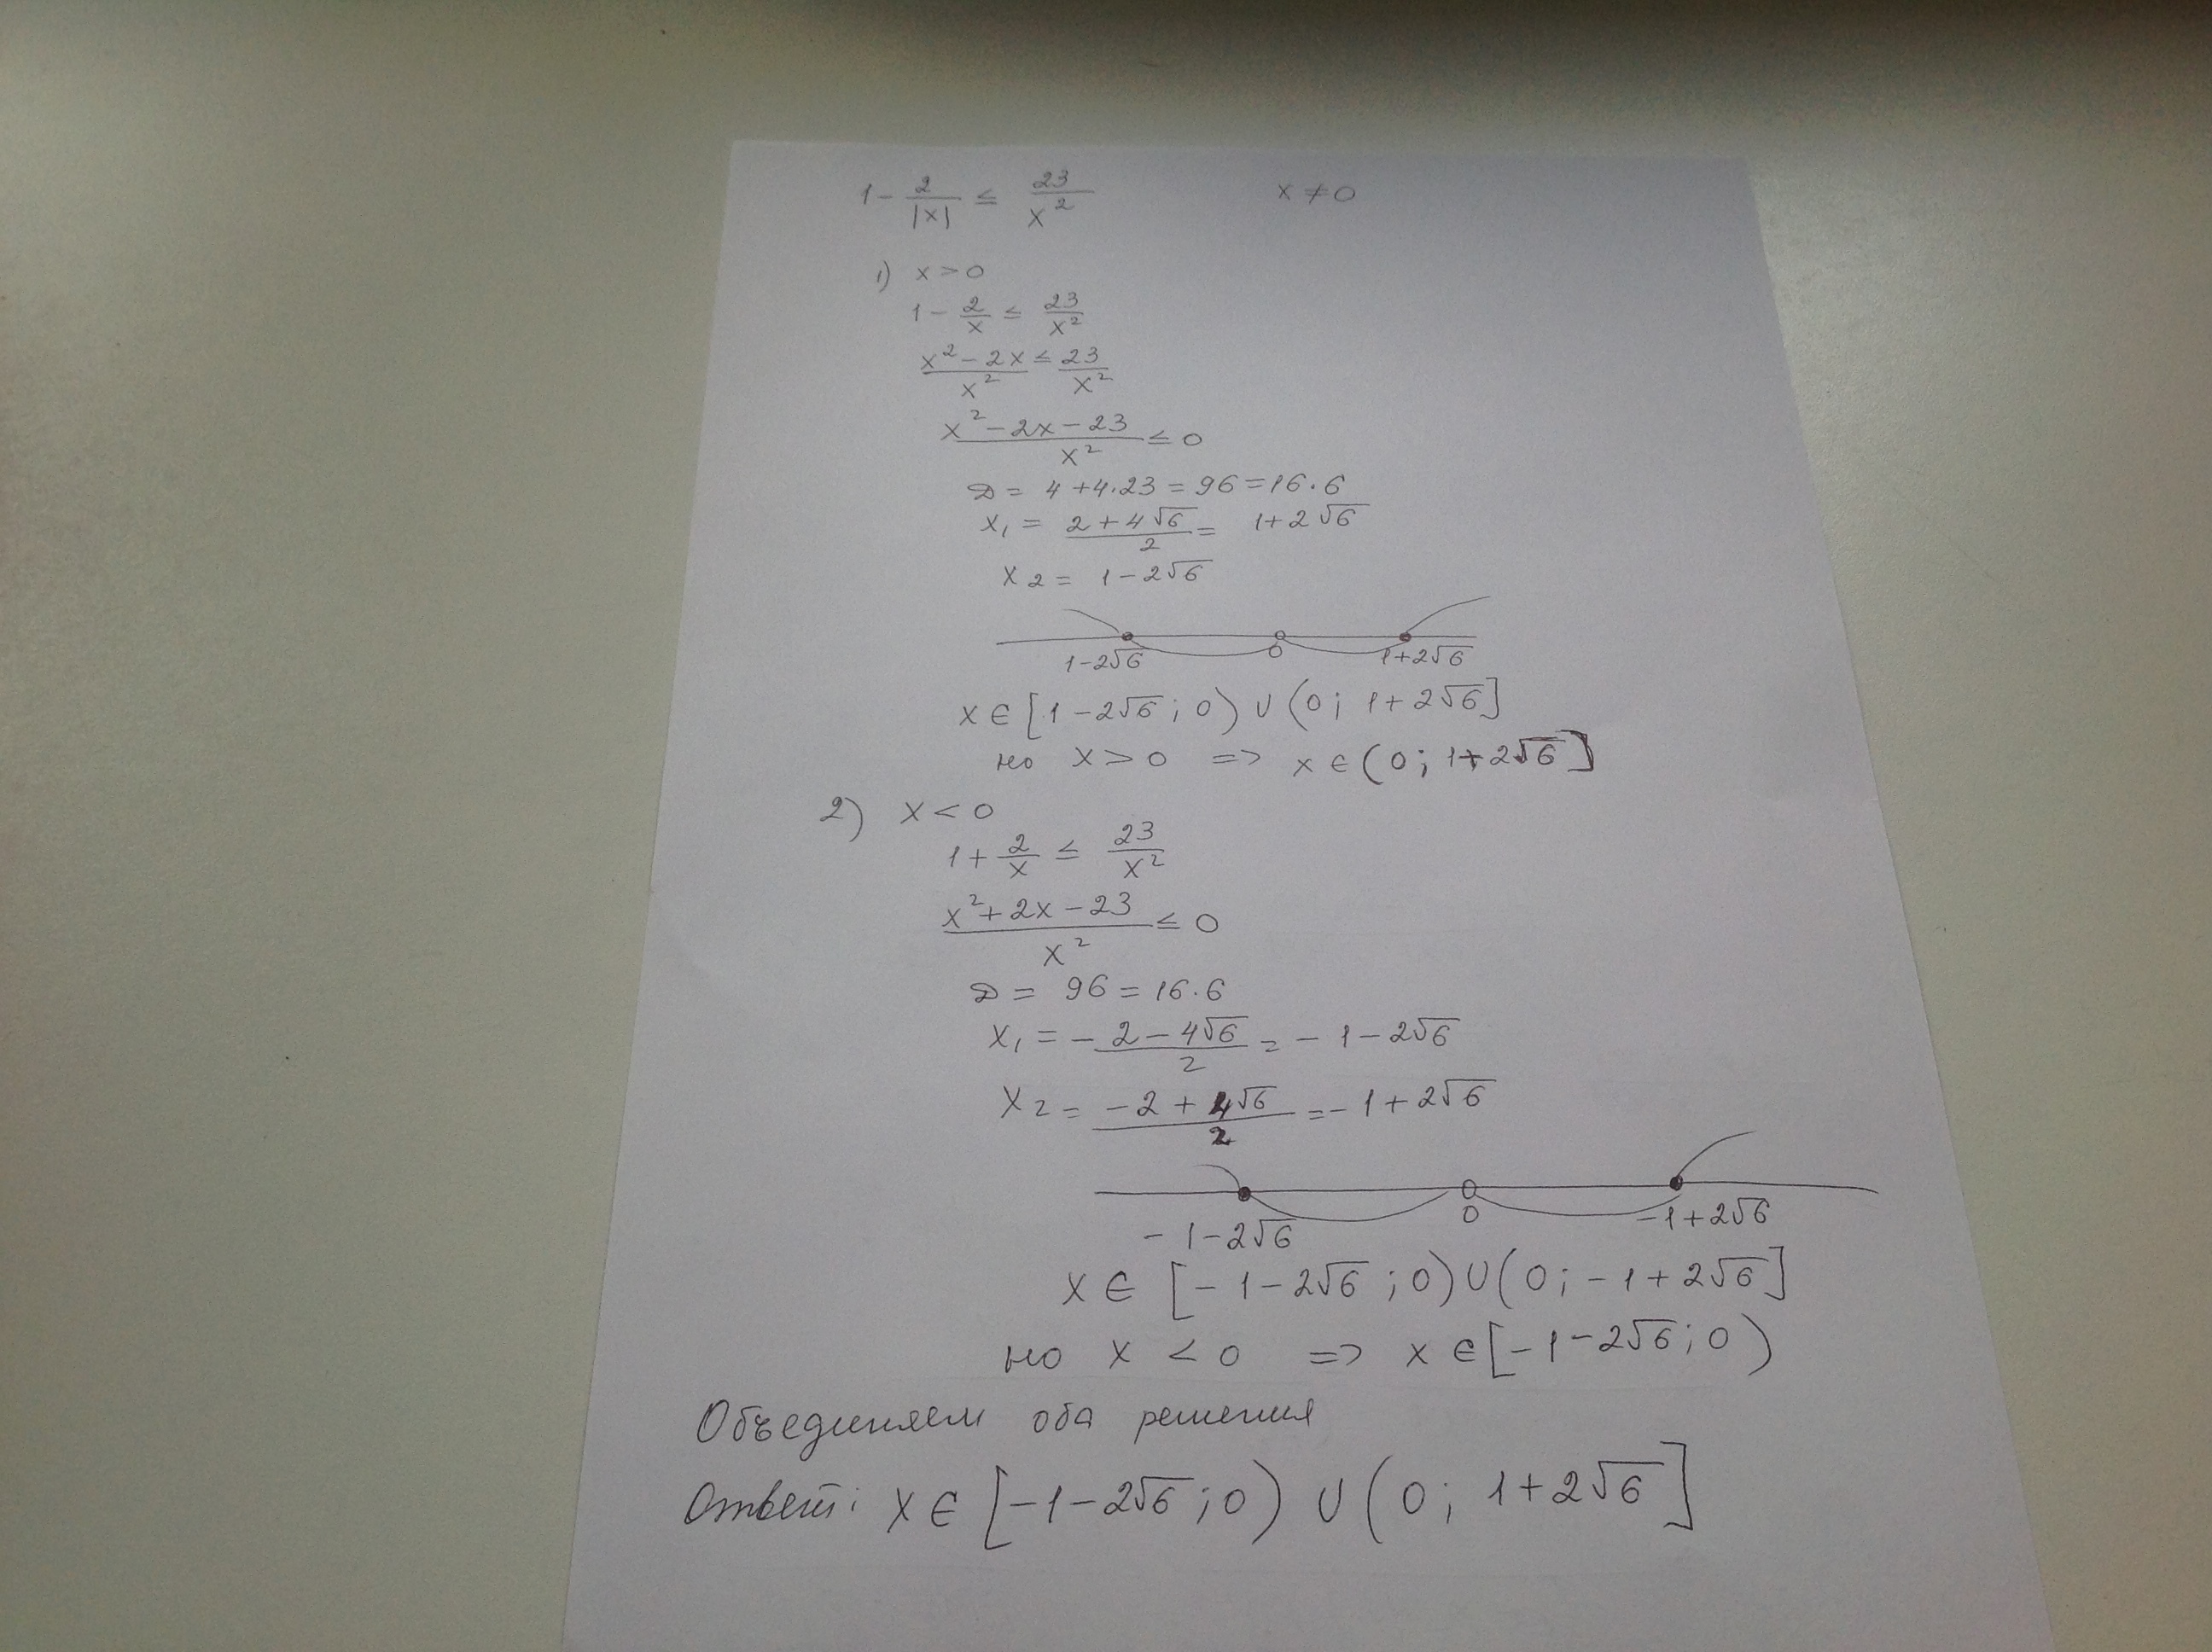 1 - 2/|x| ≤ 23/x² x ≠ 0
1) x > 0
1 - 2/x ≤ 23/x²
(x² - 2x)/x² ≤ 23/x²
(x² - 2x - 23)/x² ≤ 0
D = 4 + 4·23 = 96 = 16·6
x₁ = (2 + 4√6)/2 = 1 + 2√6
x₂ = 1 - 2√6
1-2√6 0 1+2√6
x ∈ [1 - 2√6; 0) ∪ (0; 1 + 2√6]
но x > 0 => x ∈ (0; 1 + 2√6]
2) x < 0
1 + 2/x ≤ 23/x²
(x² + 2x - 23)/x² ≤ 0
D = 96 = 16·6
x₁ = -(2 - 4√6)/2 = -1 - 2√6
x₂ = (-2 + 4√6)/2 = -1 + 2√6
-1-2√6 0 -1+2√6
x ∈ [-1 - 2√6; 0) ∪ (0; -1 + 2√6]
но x < 0 => x ∈ [-1 - 2√6; 0)
Объединяем оба решения
Ответ: x ∈ [-1 - 2√6; 0) ∪ (0; 1 + 2√6]